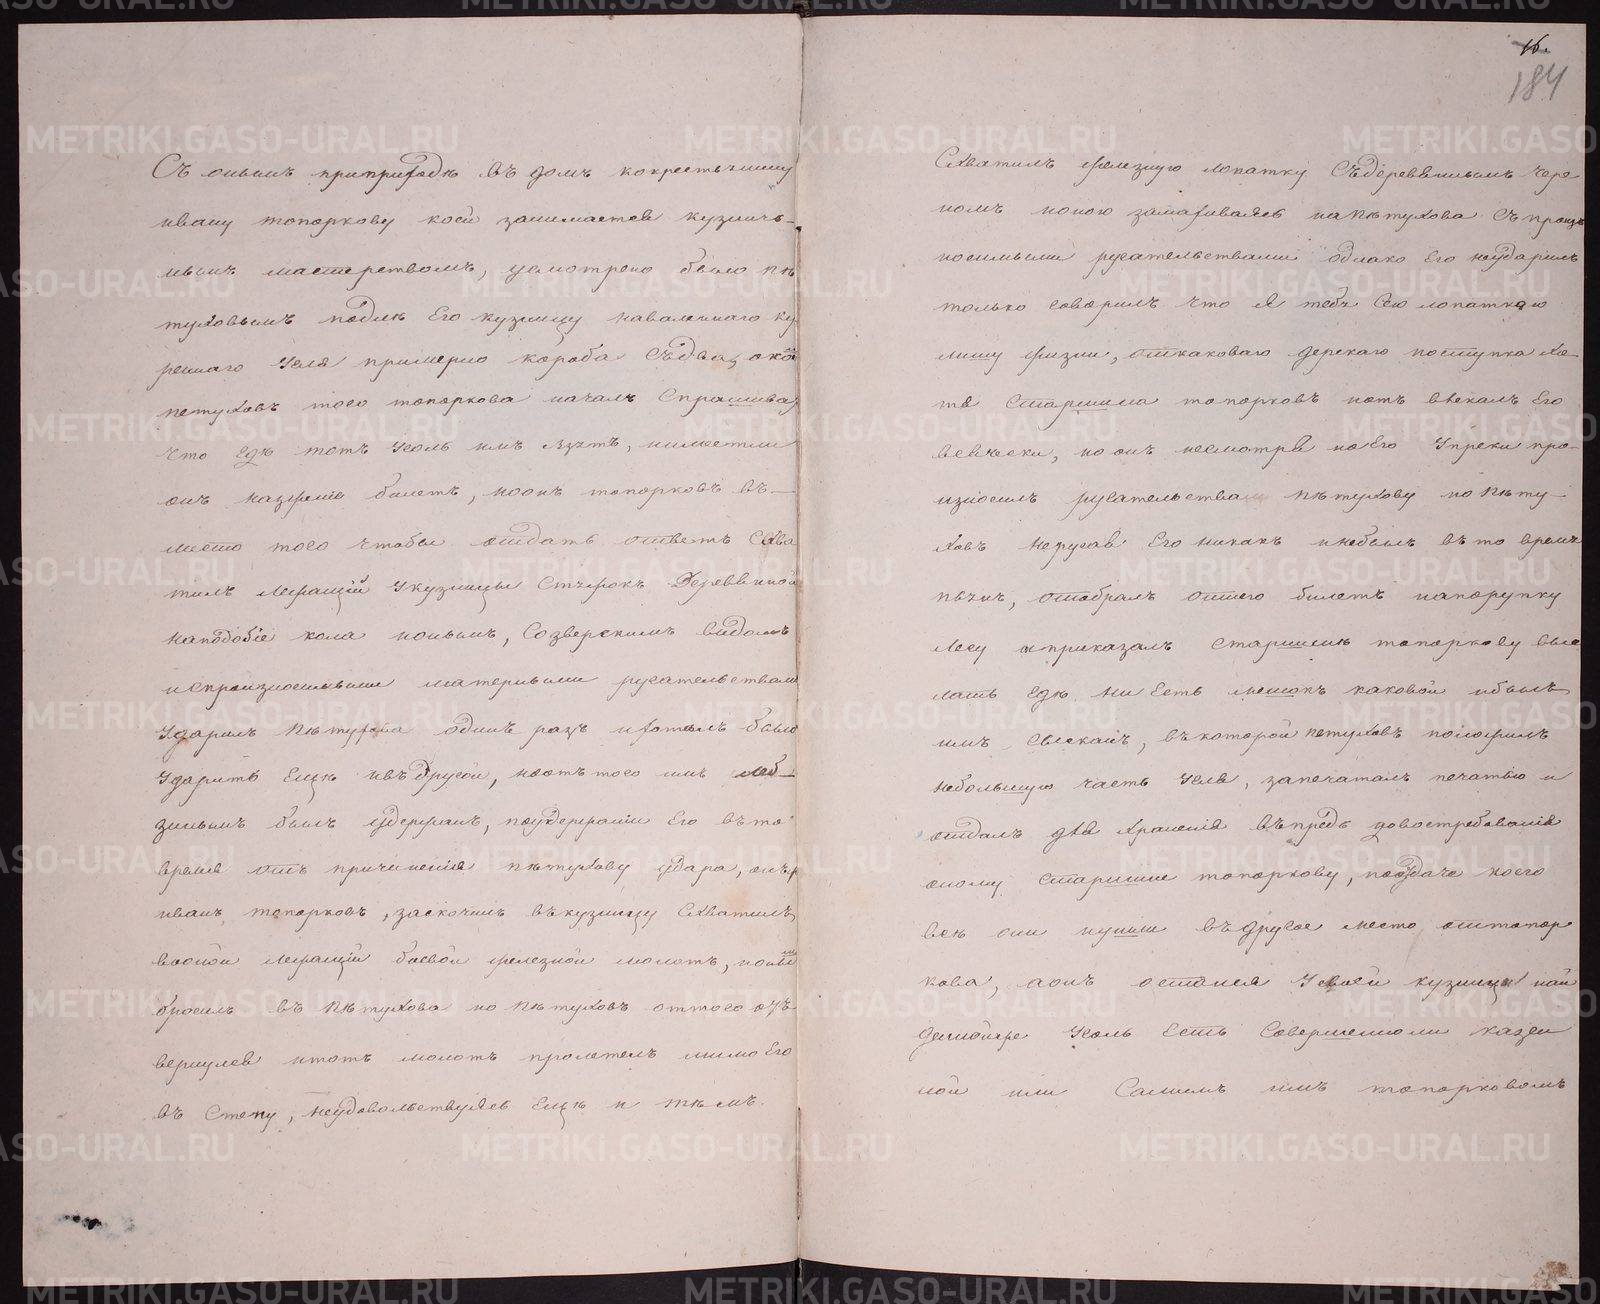 Съ онымъ приприходѣ въ домъ кокрестьянину
ивану топоркову коей занимается кузнич-
нымъ мастерствомъ, усмотрено было пѣ
туховымъ подлѣ Его кузницу наваленнаго ку
реннаго Угля примерно короба Съдва, окоемъ
петуховъ того топоркова началъ Спрашивать
что Гдѣ тотъ Уголь имъ взятъ, имеетъли
онъ назжение билетъ, ноонъ топорковъ въ-
место того чтобы отдать ответъ Схва
тилъ лежащий Укузницы Стяжокъ Деревянной
наподобіе кола ионымъ, Созверскимъ видомъ
испроизносивыми матерными ругательствами
Ударилъ пѣтухова одинъ разъ ихотелъ было
Ударить Ещѣ ивъ другой, ноотътого имъ
былъ удержанъ, поудержании Его въто
время отъ причинения пѣтухову удара, онъ
иванъ топорковъ, заскочилъ въкузницу Схватилъ
воною лежащий боевой железной молотъ, ионымъ
бросилъ въ пѣтухова но пѣтуховъ оттого отъ
вернулся итотъ молотъ пролетелъ мимо Его
въ Стену, неудовольствуясь Ещѣ и тѣмъ.
16.
184
Схватилъ железную лопатку Съдеревяннымъ чере
номъ ионою замахивался напѣтухова Съпроиз
носимыми ругательствами однако Его неударилъ
только говорилъ что я тебя Сею лопаткою
лишу жизни, откаковаго дерскаго поступка хо-
тя Старшина топорковъ ютъ взыскалъ Его
всячески, но онъ несмотря наЕго Упреки про-
износилъ ругательства пѣтухову но пѣту-
ховъ неругав Его никакъ инебылъ въто время
пьянъ, отобралъ оттого билетъ напорупку
лесу иприказалъ Старшинѣ топоркову
Гдѣ ни Есть мешокъ каковой ибылъ
имъ Сысканъ, вькоторой петуховъ положилъ
небольшую часть Угля, запечаталъ печатью и
отдалъ для хранения въпредь довостребования
оному Старшине топоркову, поотдаче коего
всѣ они пушли въдругое место оттопор
кова, аонъ остался Усвоей кузницы наи
денноиже Уголь Есть Совершенноли казен
ной или Самимъ имъ топорковымъ